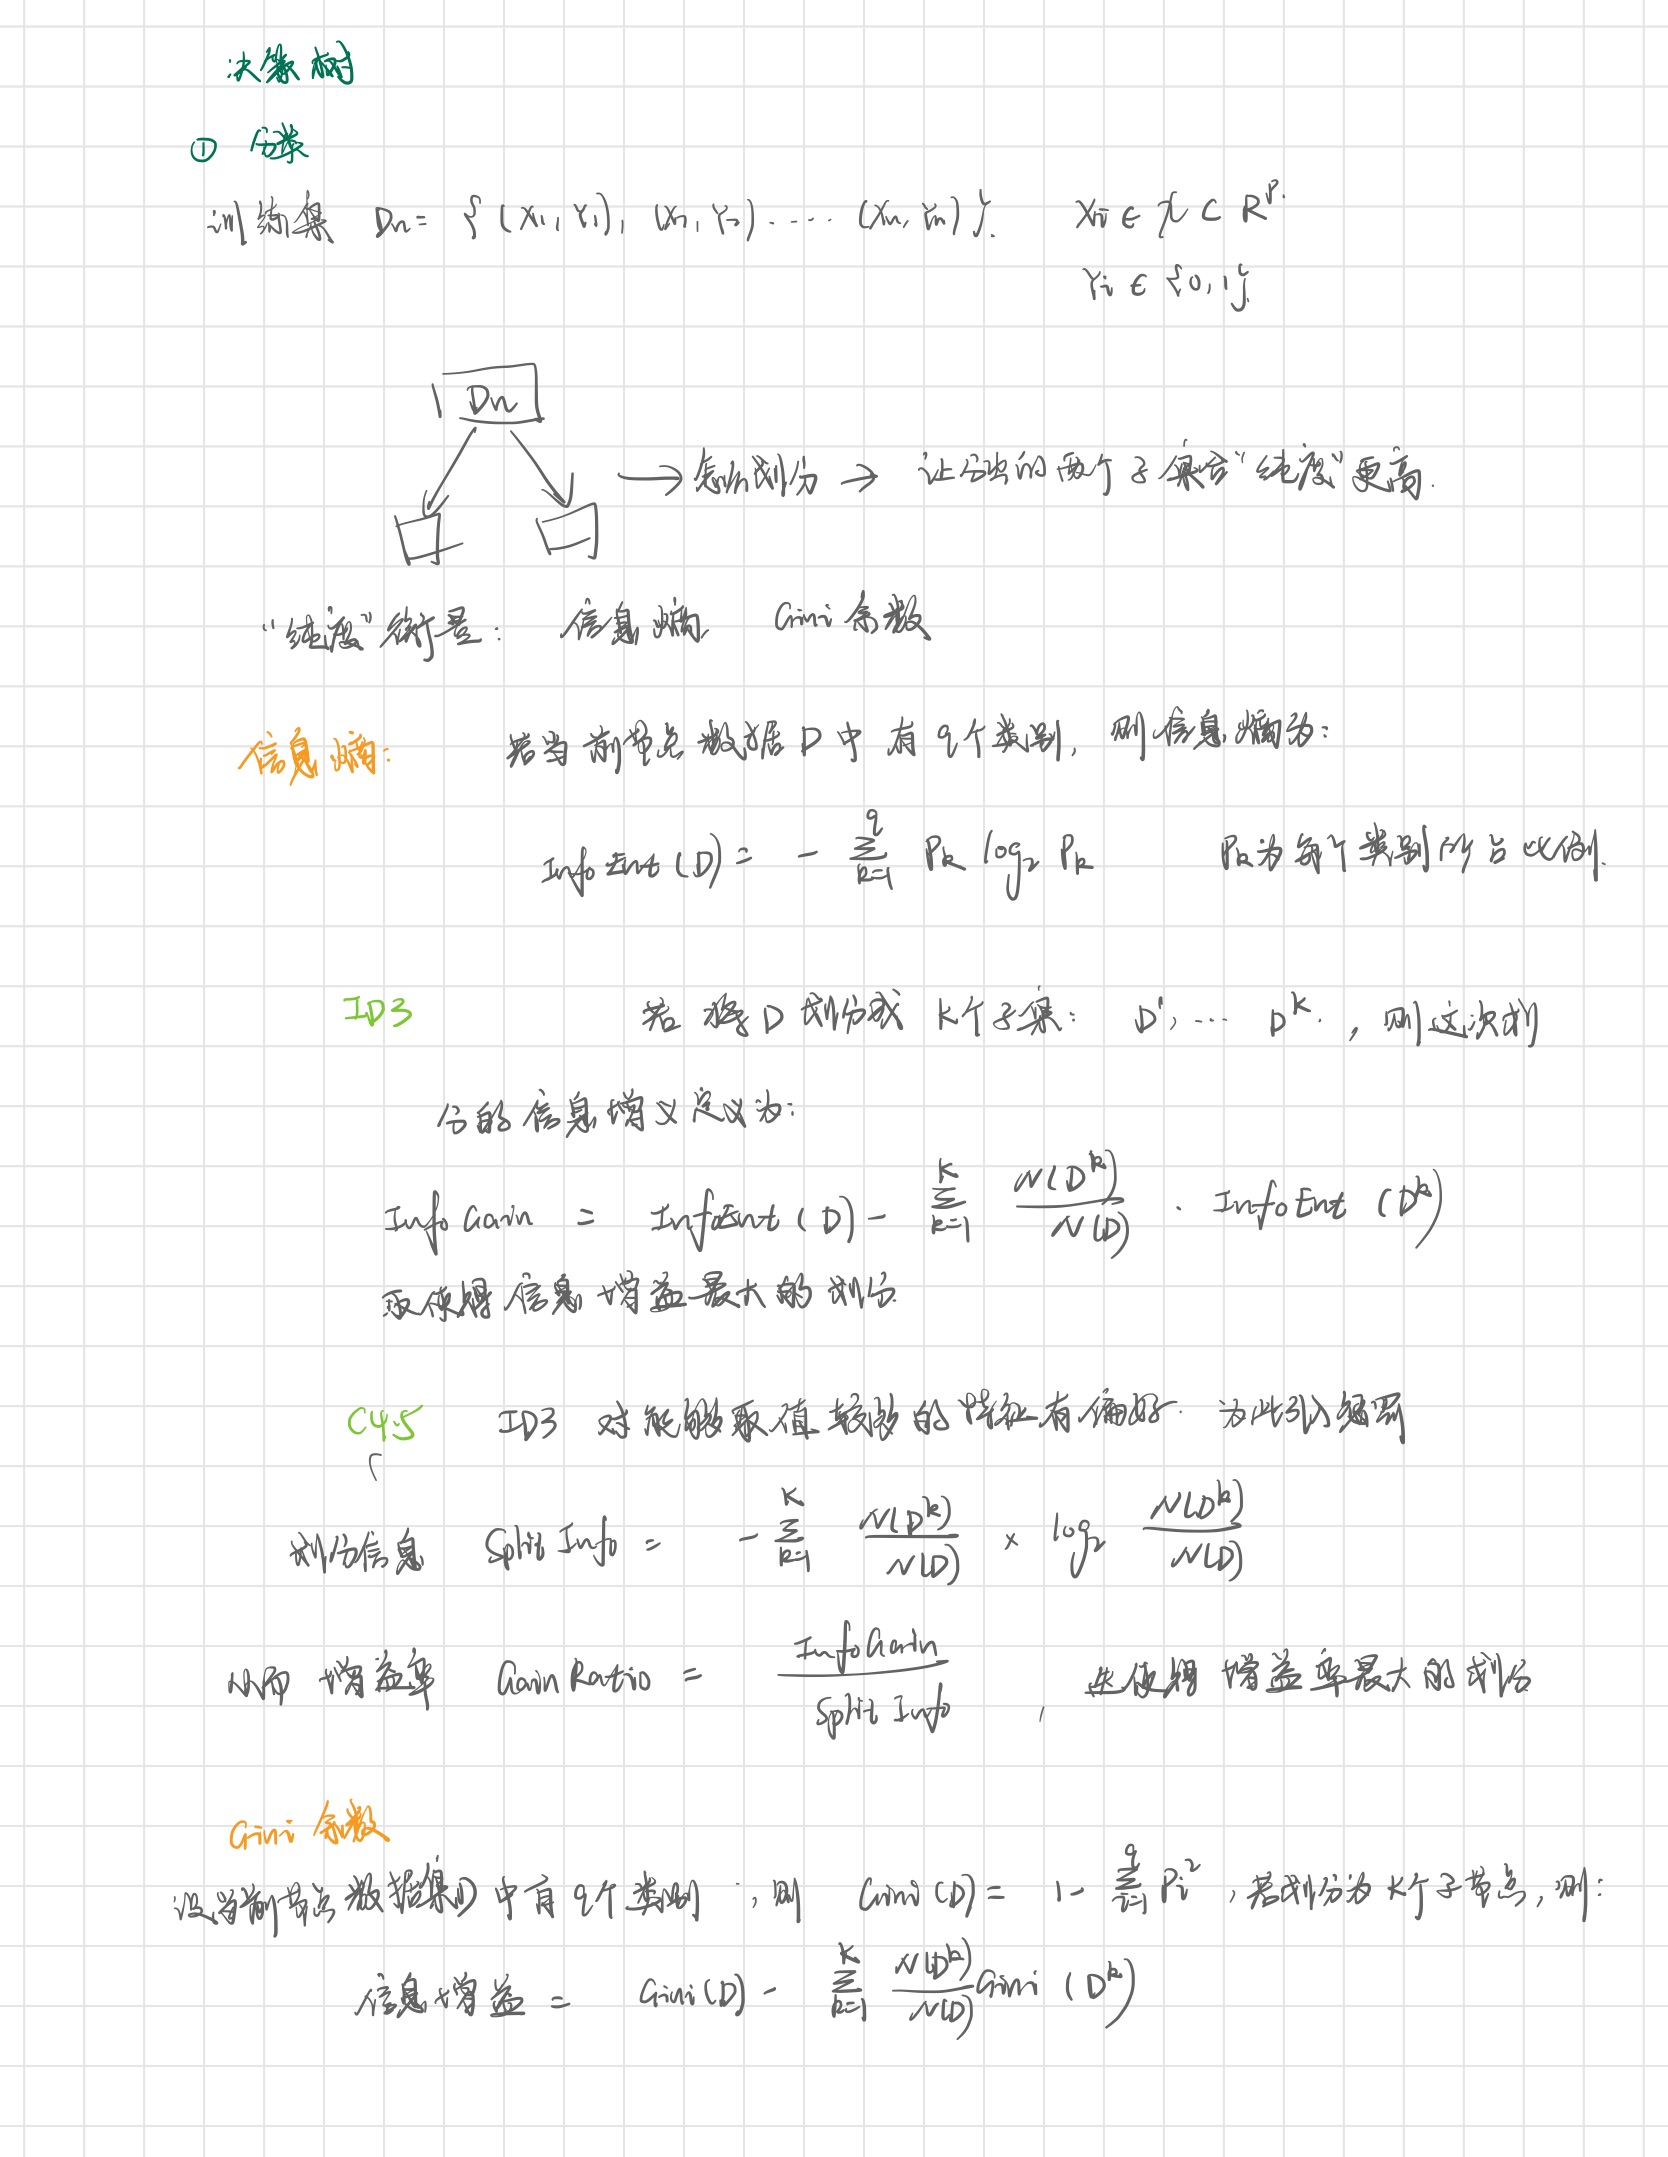 决策树
① 分类
训练集 Dn = {(X1, Y1), (X2, Y2) ···· (Xn, Yn)}. Xi ∈ 𝒳 ⊂ R^p.
Yi ∈ {0, 1}.
Dn
→ 怎么划分 → 让分出的两个子集合“纯度”更高.
“纯度”衡量: 信息熵, Gini 系数
信息熵: 若当前节点数据 D 中有 q个类别, 则信息熵为:
InfoEnt(D) = - ∑_{k=1}^{q} Pk log₂ Pk Pk为每个类别所占比例.
ID3 若将D划分成 K个子集: D^1, ··· D^K. , 则这次划
分的信息增义定义为:
InfoGain = InfoEnt(D) - ∑_{k=1}^{K} N(D^k)/N(D) · InfoEnt(D^k)
取使得信息增益最大的划分.
C4.5 ID3 对能够取值较多的特征有偏好. 为此引入惩罚
划分信息 Split Info = - ∑_{k=1}^{K} N(D^k)/N(D) × log₂ N(D^k)/N(D)
从而 增益率 Gain Ratio = InfoGain/Split Info , 选使得增益率最大的划分
Gini 系数
设当前节点数据集D中有q个类别, 则 Gini(D) = 1 - ∑_{i=1}^{q} Pi² , 若划分为K个子节点, 则:
信息增益 = Gini(D) - ∑_{k=1}^{K} N(D^k)/N(D) Gini(D^k)